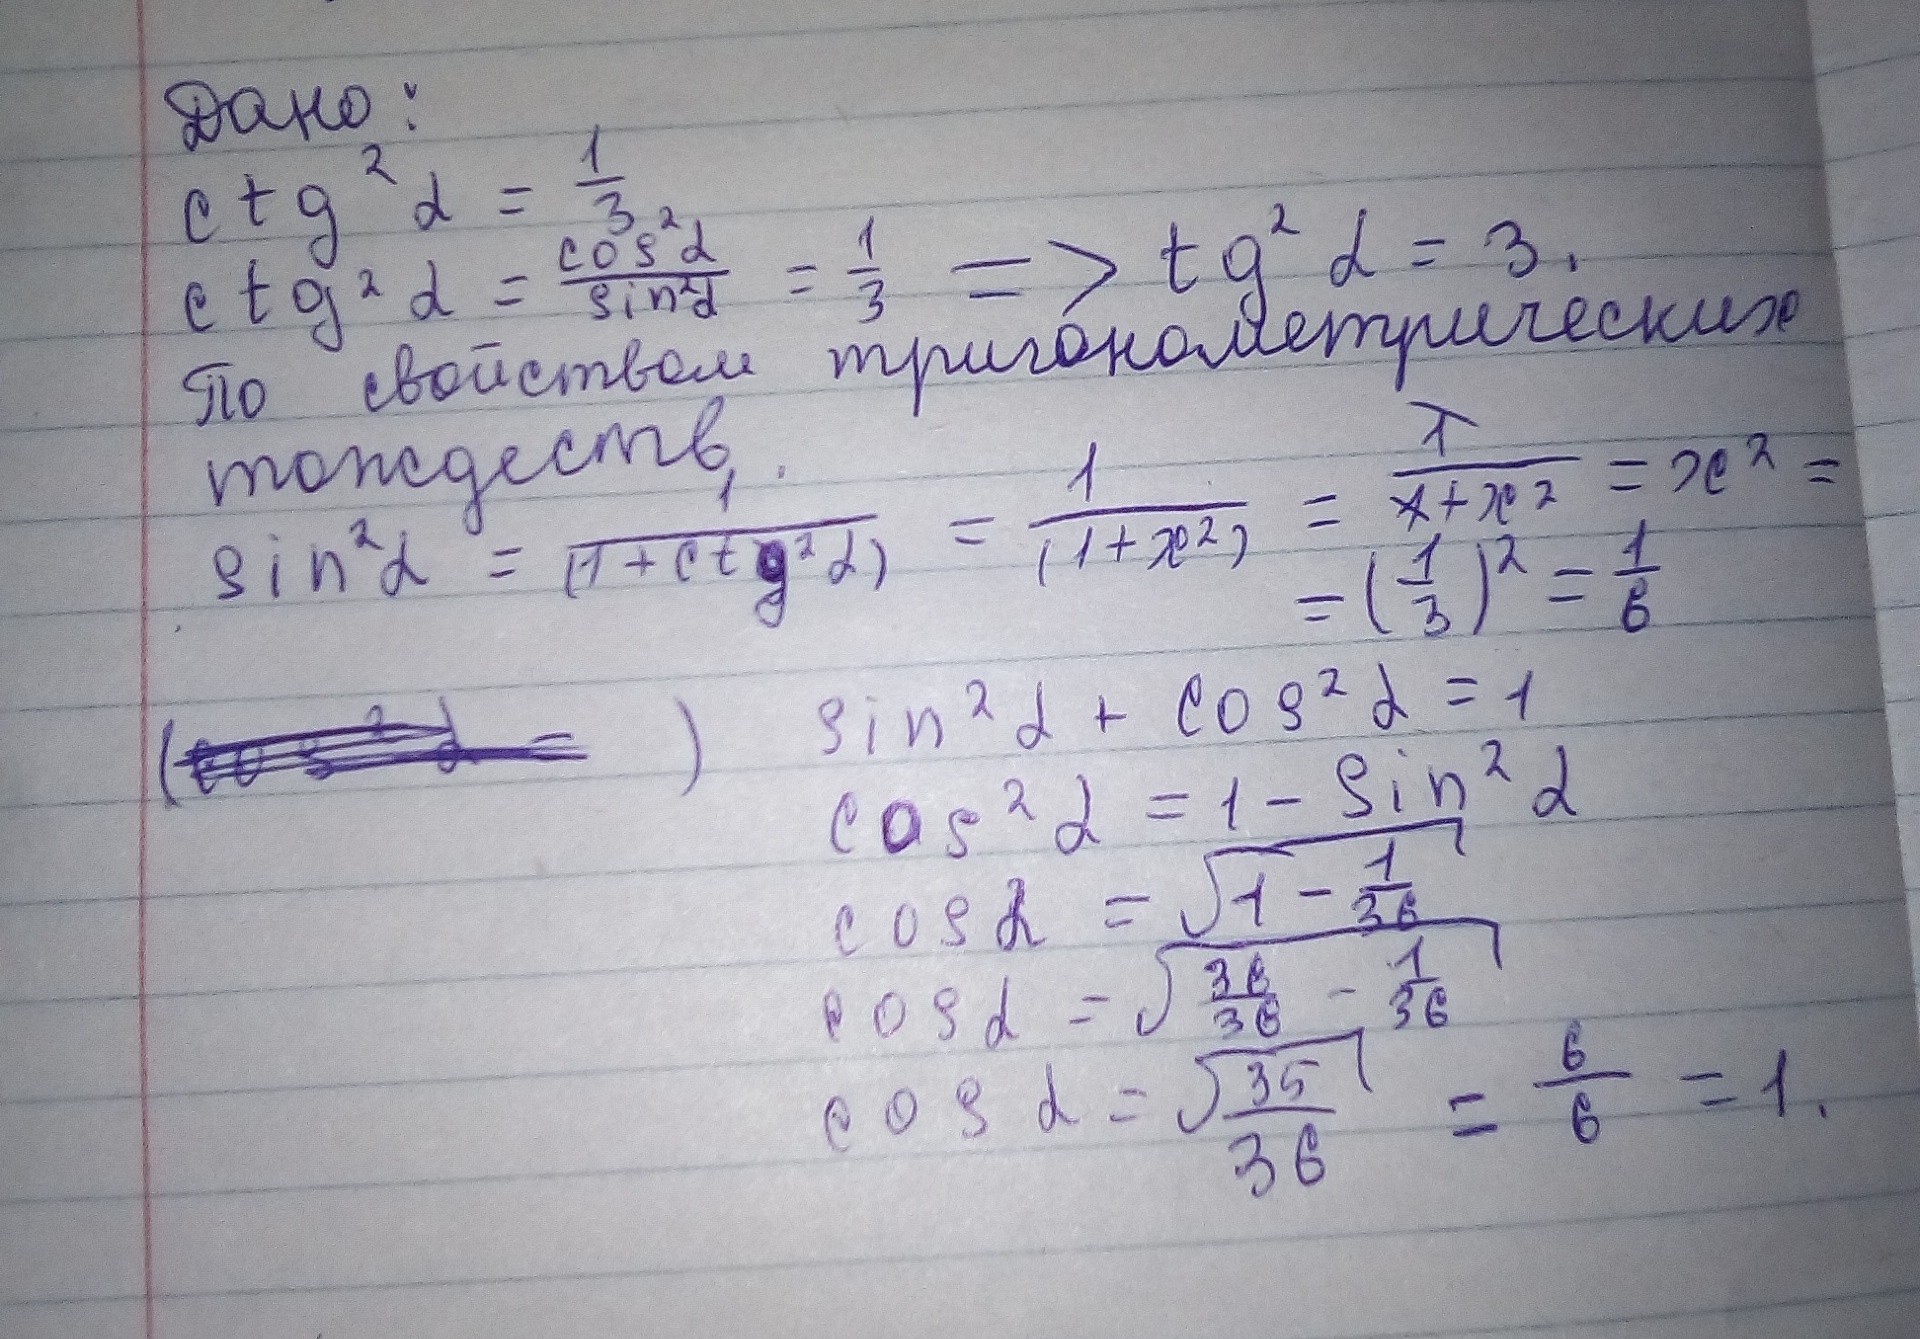 Дано:
ctg²α = 1/3
ctg²α = cos²α/sin²α = 1/3 => tg²α = 3.
По свойствам тригонометрических
тождеств.
sin²α = 1/(1+ctg²α) = 1/(1+x²) = 1/1+x² = x² =
= (1/3)² = 1/6
sin²α + cos²α = 1
cos²α = 1 - sin²α
cosα = √1 - 1/36
cosα = √36/36 - 1/36
cosα = √35/36 = 6/6 = 1.